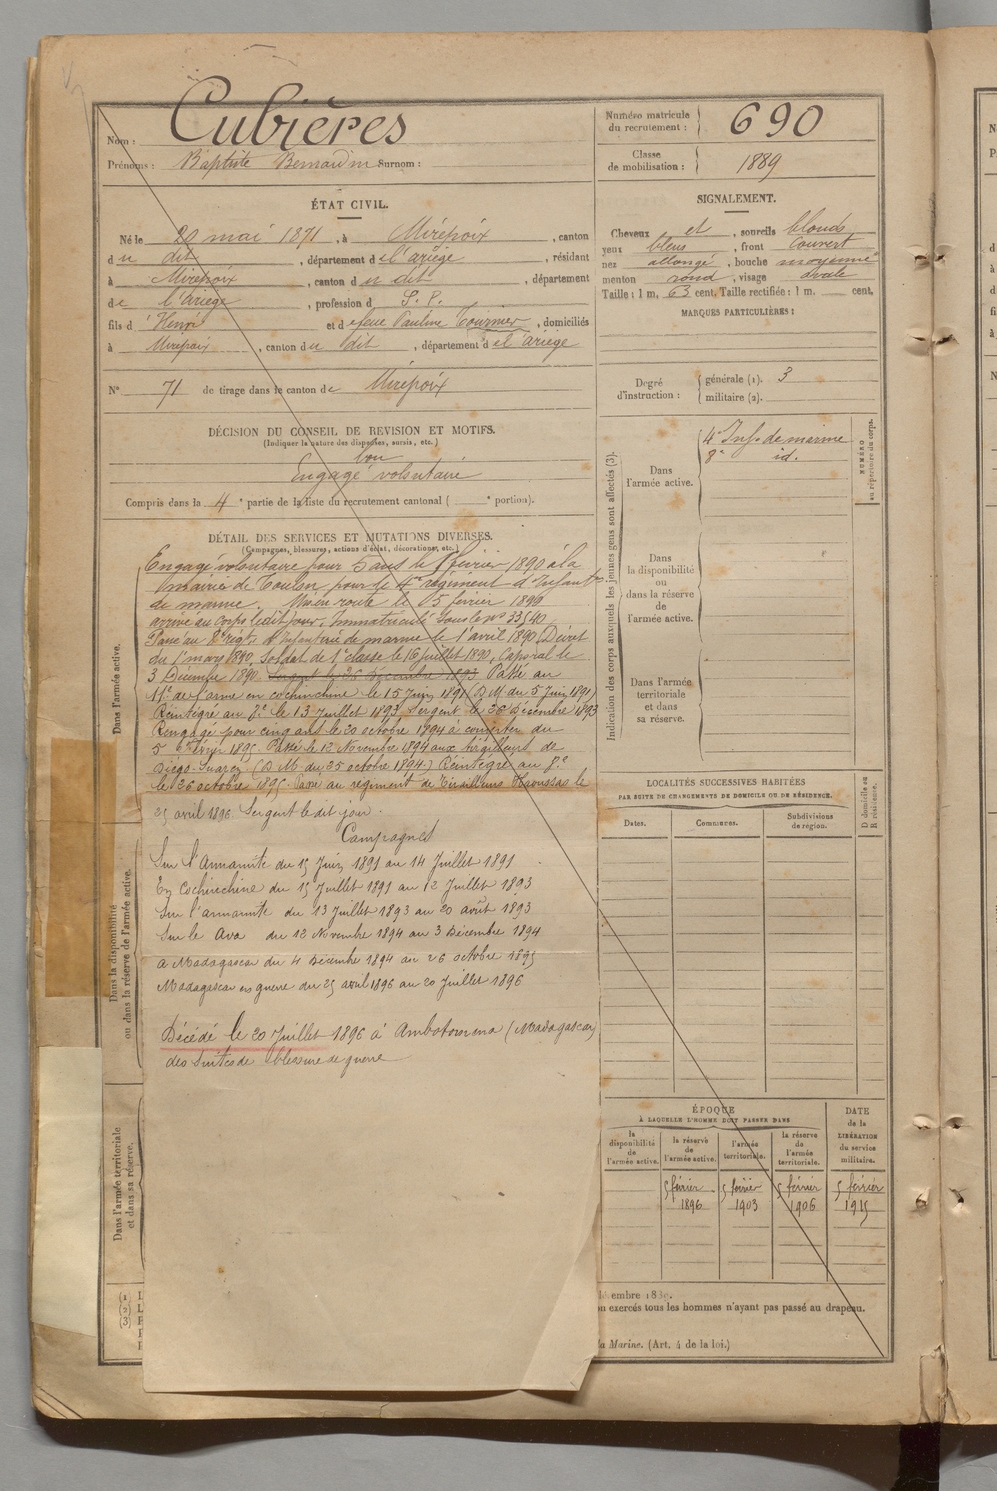 Nom : Cubières
Prénoms : Baptiste Bernardin Surnom :
Numéro matricule du recrutement : 690
Classe de mobilisation : 1889
ÉTAT CIVIL.
Né le 20 mai 1871, à Mirepoix, canton
du dit, département de l'ariège, résidant
à Mirepoix, canton du dit, département
de l'Ariège, profession d S. P.
fils d'Henri et de feue Pauline Tournier, domiciliés
à Mirepoix, canton du dit, département de l'ariège
N° 71 de tirage dans le canton de Mirepoix
DÉCISION DU CONSEIL DE REVISION ET MOTIFS.
(Indiquer la nature des dispenses, sursis, etc.)
bon
Engagé volontaire
Compris dans la 4e partie de la liste du recrutement cantonal ( e portion).
SIGNALEMENT.
Cheveux et, sourcils blonds
yeux bleus, front couvert
nez allongé, bouche moyenne
menton rond, visage ovale
Taille : 1 m. 63 cent. Taille rectifiée : 1 m. cent.
MARQUES PARTICULIÈRES :
Degré d'instruction : générale (1). 3
militaire (2).
DÉTAIL DES SERVICES ET MUTATIONS DIVERSES.
(Campagnes, blessures, actions d'éclat, décorations, etc.)
Dans l'armée active.
Engagé volontaire pour 5 ans le 5 février 1890 à la
mairie de Toulon pour le 4e régiment d'Infanterie
de marine. Mis en route le 5 février 1890
arrivé au corps ledit jour, Immatriculé sous le n° 33540.
Passé au 8e régt d'Infanterie de marine le 1er avril 1890 (Décret
du 1er mars 1890, Soldat de 1e classe le 16 juillet 1890, Caporal le
3 Décembre 1890. Sergent le 26 Décembre 1893 Passé au
11e de l'arme en cochinchine le 15 Juin 1891 (D.M. du 5 Juin 1891)
Réintégré au 8e le 13 Juillet 1893, Sergent le 26 Décembre 1893
Rengagé pour cinq ans le 20 octobre 1894 à compter du
5 février 1895. Passé le 12 Novembre 1894 aux tirailleurs de
Diégo-Suarez (D.M. du 25 octobre 1894.) Réintégré au 8e
le 26 octobre 1895. Passé au régiment de Tirailleurs Haoussas le
25 avril 1896. Sergent le dit jour
Campagnes
Sur l'Annamite du 15 Juin 1891 au 14 Juillet 1891
En Cochinchine du 15 Juillet 1891 au 12 Juillet 1893
Sur l'annamite du 13 Juillet 1893 au 20 août 1893
Sur le Ava du 12 Novembre 1894 au 3 Décembre 1894
a Madagascar du 4 Décembre 1894 au 26 octobre 1895
Madagascar en guerre du 25 avril 1896 au 20 Juillet 1896
Décédé le 20 Juillet 1896 à (Madagascar)
des suites de blessure de guerre
Dans la disponibilité ou dans la réserve de l'armée active.
Dans l'armée territoriale et dans sa réserve.
Indication des corps auxquels les jeunes gens sont affectés (3).
NUMÉRO au répertoire du corps.
Dans l'armée active.
4e Inf. de marine
8e id.
Dans la disponibilité ou dans la réserve de l'armée active.
Dans l'armée territoriale et dans sa réserve.
LOCALITÉS SUCCESSIVES HABITÉES
PAR SUITE DE CHANGEMENTS DE DOMICILE OU DE RÉSIDENCE.
Dates. Communes. Subdivisions de région. D domicile ou R résidence.
ÉPOQUE
À LAQUELLE L'HOMME DOIT PASSER DANS
la disponibilité de l'armée active.
la réserve de l'armée active.
l'armée territoriale.
la réserve de l'armée territoriale.
DATE de la LIBÉRATION du service militaire.
5 février 1896
5 février 1903
5 février 1906
5 février 1915
(1)
(2)
(3)
on exercés tous les hommes n'ayant pas passé au drapeau.
la Marine. (Art. 4 de la loi.)